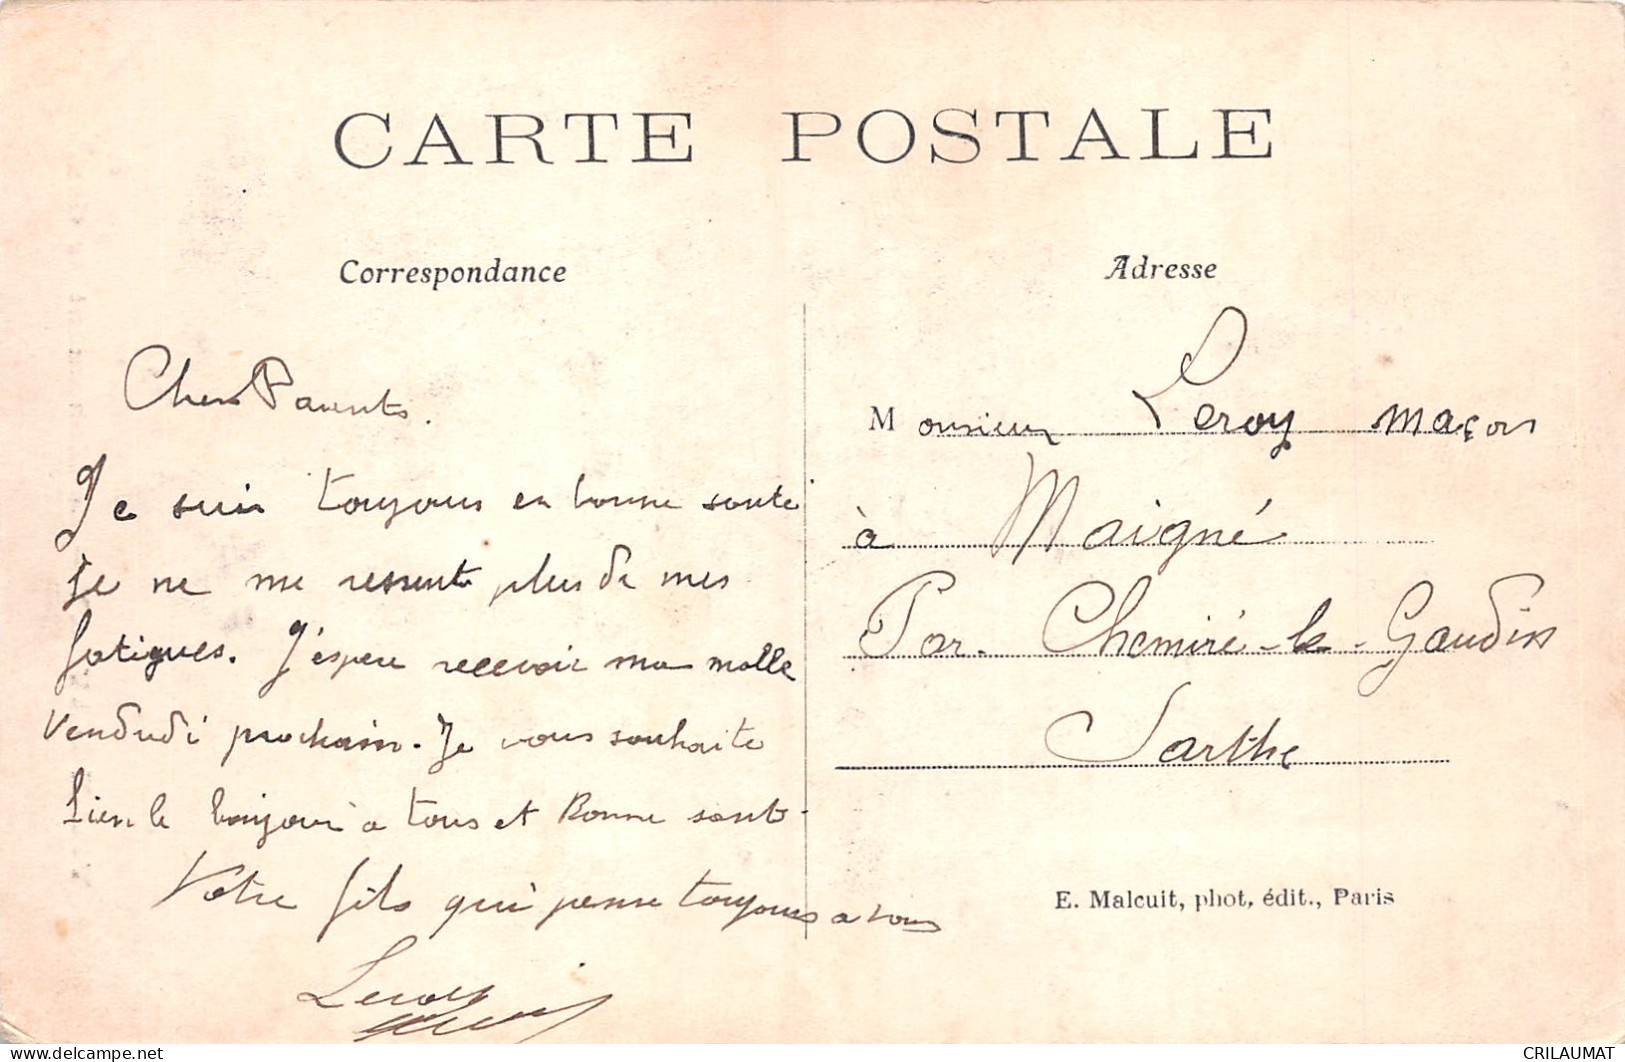 CARTE POSTALE
Correspondance
Chers Parents.
Je suis toujours en bonne santé
je ne me ressent plus de mes
fatigues. J'espere recevoir ma malle
vendredi prochain. Je vous souhaite
bien le bonjour a tous et Bonne santé
Votre fils qui pense toujours a vous
Leroy
Adresse
Monsieur Leroy maçon
à Maigné
Par. Chemiré-le-Gaudin
Sarthe
E. Malcuit, phot. édit., Paris
delcampe.net
CRILAUMAT